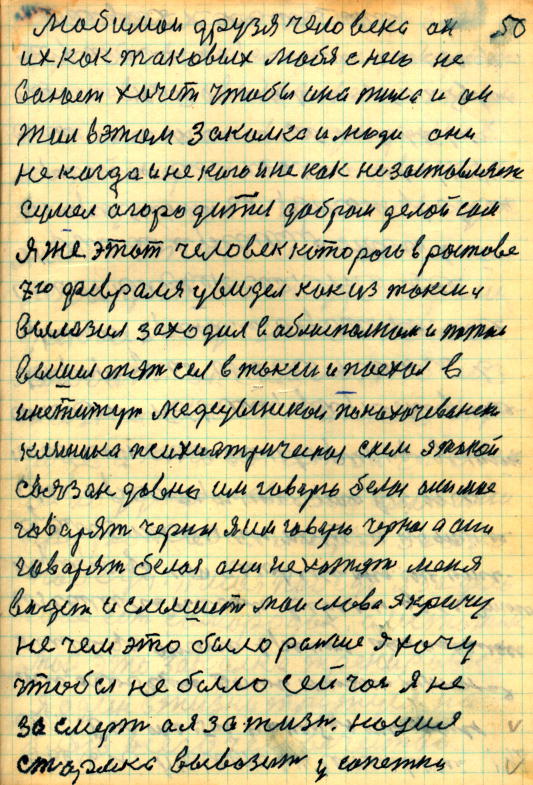 50
Любимои друзя человека он
их как таковых любя с нею не
хочет чтобы она жила и он
жил в этом законка и люди они
не когда и не кого и не как не заставляют
сумел огородитсы добром делой сам
Я же этот человек которого в ростове
7го февраля увидел как из токси
вылозил заходил в облисполком и потом
вышил опят сел в токси и поехал в
институт медецынскои по нахочевански
клиника психиатрическая скем я токой
связан довны им говорь белоя они мне
говарят чернои я им говорь чернои а они
говарят белоя они не хотят меня
видет и слышет мои слова я кричу
не чем это было ранше я хочу
чтобы не было сейчоя Я не
за смерт а я за жизн. нация
старяка вывозит у